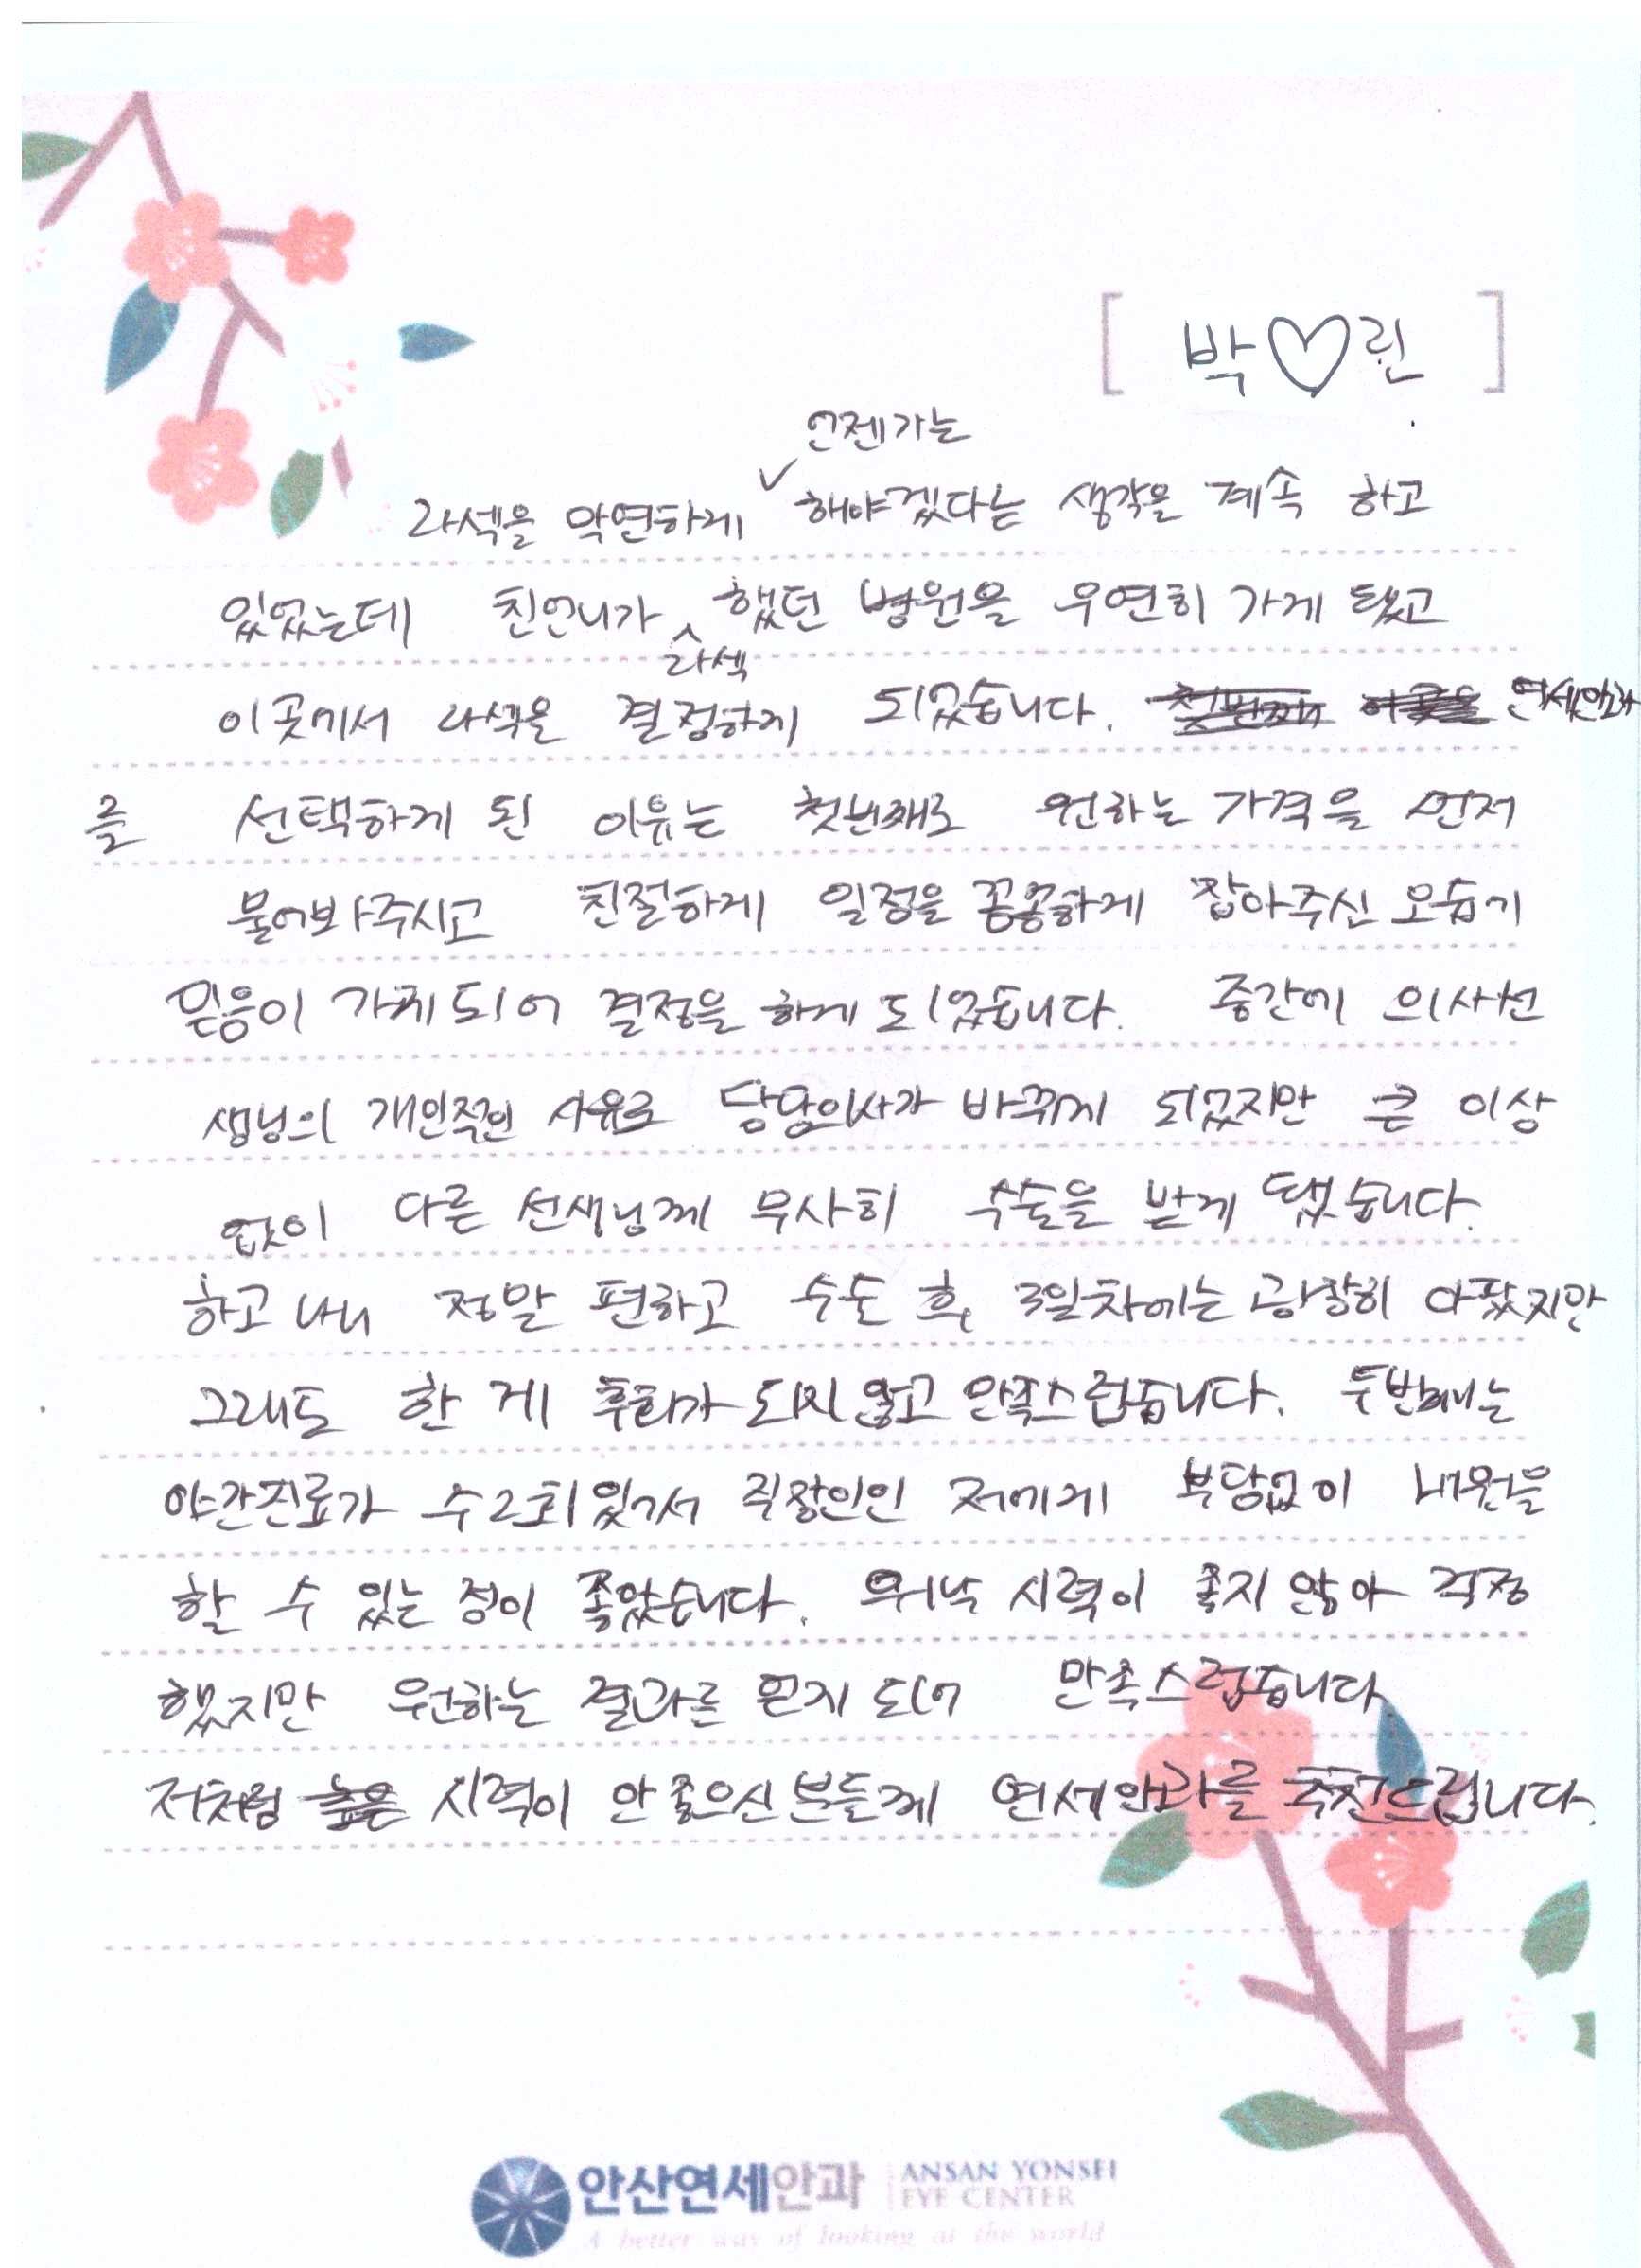 [ 박♡린 ]
언젠가는
라섹을 막연하게 ✓ 해야겠다는 생각을 계속 하고
있었는데 친언니가 ^ 했던 병원을 우연히 가게 됐고
라섹
이곳에서 라섹을 결정하게 되었습니다. 연세안과
를 선택하게 된 이유는 첫번째로 원하는 가격을 먼저
물어봐주시고 친절하게 일정을 꼼꼼하게 잡아주신 모습에
믿음이 가게되어 결정을 하게 되었습니다. 중간에 의사선
생님의 개인적인 사유로 담당의사가 바뀌게 되었지만 큰 이상
없이 다른 선생님께 무사히 수술을 받게 됐습니다.
하고 나니 정말 편하고 수술 후 3일차에는 굉장히 아팠지만
그래도 한 게 후회가 되지 않고 만족스럽습니다. 두번째는
야간진료가 주2회 있어서 직장인인 저에게 부담없이 내원을
할 수 있는 점이 좋았습니다. 워낙 시력이 좋지 않아 걱정
했지만 원하는 결과를 얻게 되어 만족스럽습니다
저처럼 시력이 안 좋으신 분들께 연세안과를 추천드립니다.
안산연세안과 ANSAN YONSEI
EYE CENTER
A better way of looking at the world